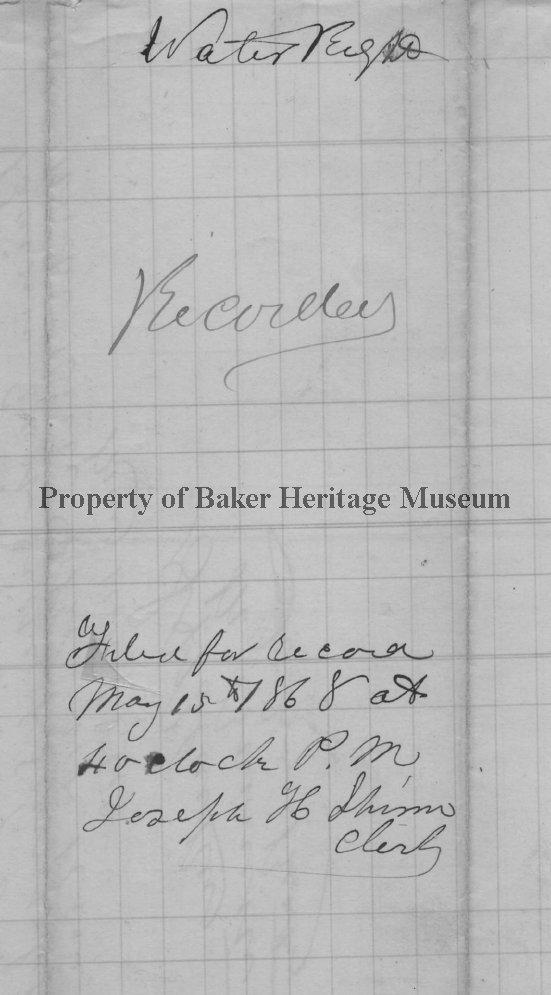 Water Right
Recorded
Property of Baker Heritage Museum
Filed for record
May 15th 1868 at
4 o clock P.M,
Joseph H Shinn
Clerk